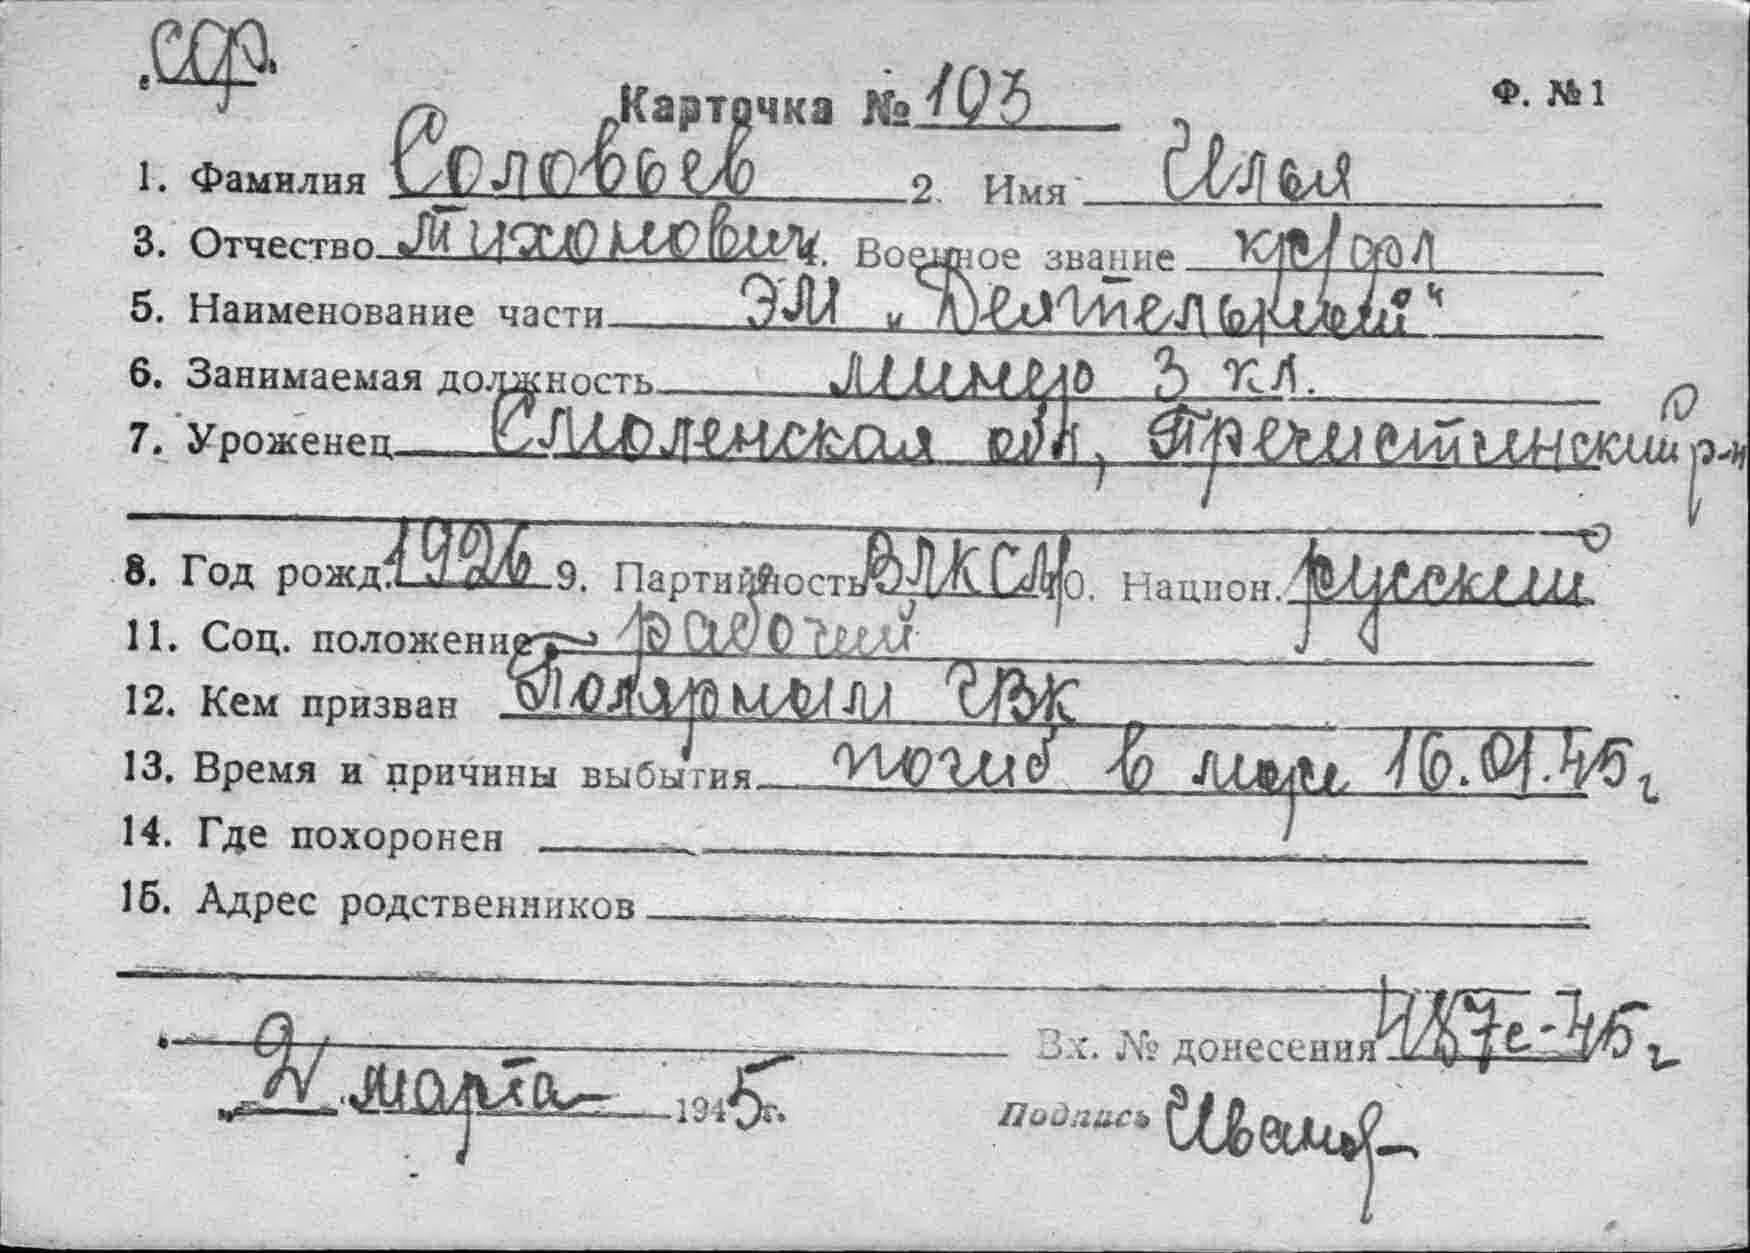 СФ.
Карточка № 193 Ф. № 1
1. Фамилия Соловьев 2. Имя Илья
3. Отчество Тихонович 4. Военное звание кр/фл
5. Наименование части ЭМ „Деятельный“
6. Занимаемая должность минер 3 кл.
7. Уроженец Смоленская обл, Пречистинский р-н
8. Год рожд. 1926 9. Партийность ВЛКСМ 10. Национ. русский
11. Соц. положение рабочий
12. Кем призван Полярным ГВК
13. Время и причины выбытия погиб в море 16.01.45 г
14. Где похоронен
15. Адрес родственников
Вх. № донесения 487с-45 г
„2“ марта 1945 г.
Подпись Иванов